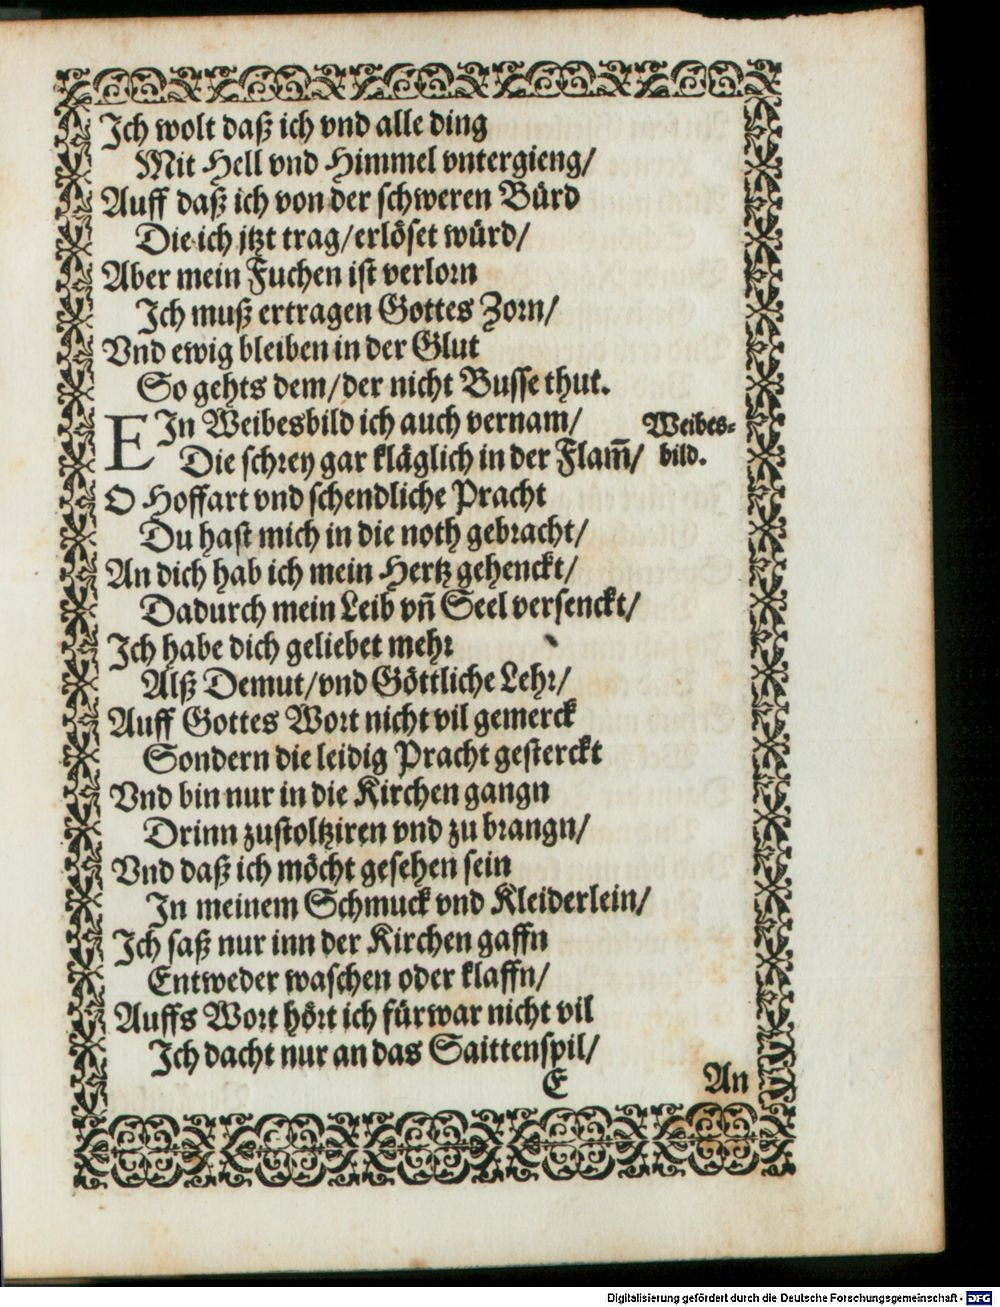 Ich wolt daß ich vnd alle ding
Mit Hell vnd Himmel vntergieng/
Auff daß ich von der schweren Bürd
Die ich jtzt trag/erlöset würd/
Aber mein Fuchen ist verlorn
Ich muß ertragen Gottes Zorn/
Vnd ewig bleiben in der Glut
So gehts dem/der nicht Busse thut.
EIn Weibesbild ich auch vernam/
Weibes-
Die schrey gar kläglich in der Flam̅/
bild.
O Hoffart vnd schendliche Pracht
Du hast mich in die noth gebracht/
An dich hab ich mein Hertz gehenckt/
Dadurch mein Leib vn̅ Seel versenckt/
Ich habe dich geliebet mehr
Alß Demut/vnd Göttliche Lehr/
Auff Gottes Wort nicht vil gemerck
Sondern die leidig Pracht gesterckt
Vnd bin nur in die Kirchen gangn
Drinn zustoltziren vnd zu brangn/
Vnd daß ich möcht gesehen sein
In meinem Schmuck vnd Kleiderlein/
Ich saß nur inn der Kirchen gaffn
Entweder waschen oder klaffn/
Auffs Wort hört ich fürwar nicht vil
Ich dacht nur an das Saittenspil/
E
An
Digitalisierung gefördert durch die Deutsche Forschungsgemeinschaft - DFG